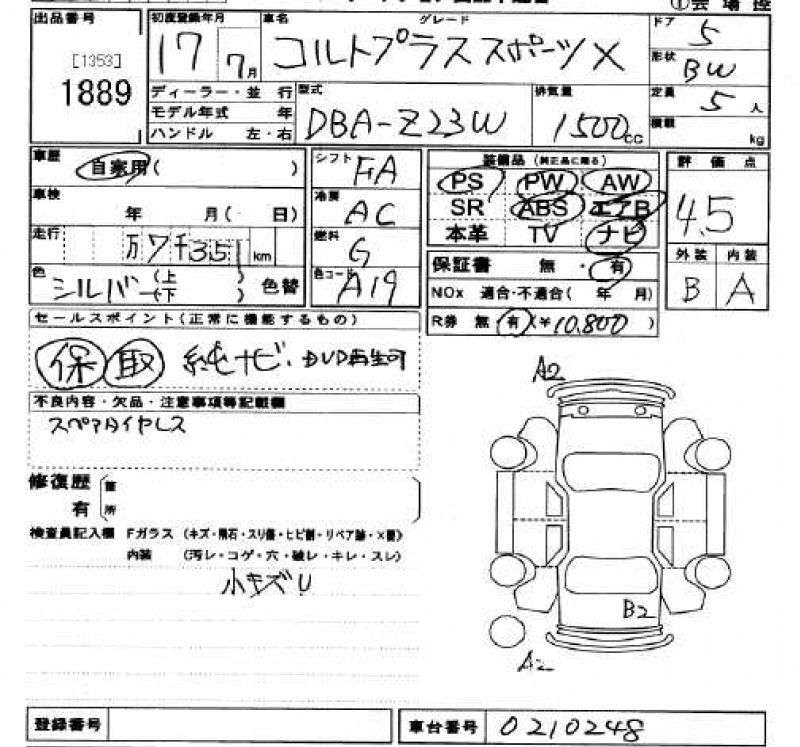 ①会場控
出品番号
[1353]
1889
初度登録年月 車名 グレード
17 7月 コルトプラススポーツX
ドア 5
形状 BW
ディーラー・並行 型式 排気量 定員 5人
モデル年式 年 DBA-Z23W 1500cc
ハンドル 左・右 積載 kg
車歴 自家用( )
車検 年 月( 日)
走行 万7千351km
色 シルバー(上下) 色替
シフト FA
冷房 AC
燃料 G
色コード A19
装備品 (純正品に限る)
PS PW AW
SR ABS エアB
本革 TV ナビ
保証書 無・有
NOx 適合・不適合( 年 月)
R券 無 有(¥10,800)
評価点
4.5
外装 内装
B A
セールスポイント(正常に機能するもの)
保 取 純ナビ、DVD再生可
不良内容・欠品・注意事項等記載欄
スペアタイヤレス
修復歴 箇
有 所
検査員記入欄 Fガラス (キズ・飛石・スリ傷・ヒビ割・リペア跡・×要)
内装 (汚レ・コゲ・穴・破レ・キレ・スレ)
小キズU
A2
B2
A2
登録番号
車台番号 0210248